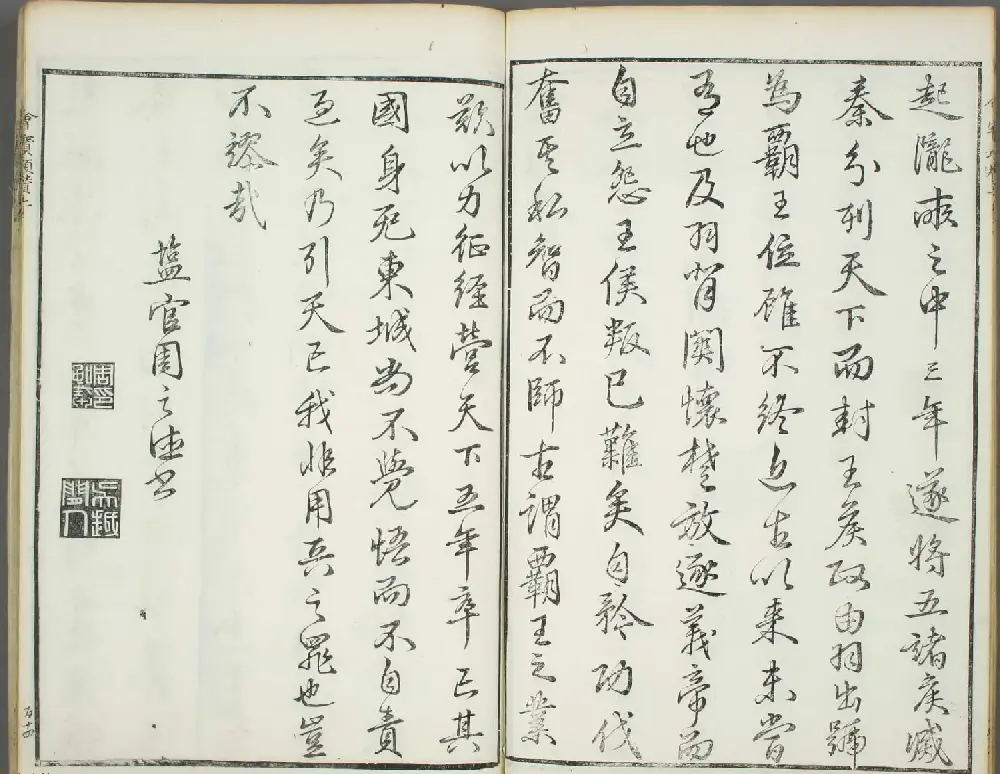 起隴畝之中三年遂將五諸侯滅
秦分列天下而封王矦政由羽出號
為霸王位雖不終近古以來未嘗
有也及羽背關懷楚放逐義帝而
自立怨王侯叛已難矣自矜功伐
奮其私智而不師古謂霸王之業
欲以力征經營天下五年卒亡其
國身死東城尚不覺悟而不自責
過矣乃引天亡我非用兵之罪也豈
不謬哉
塩官周之德書